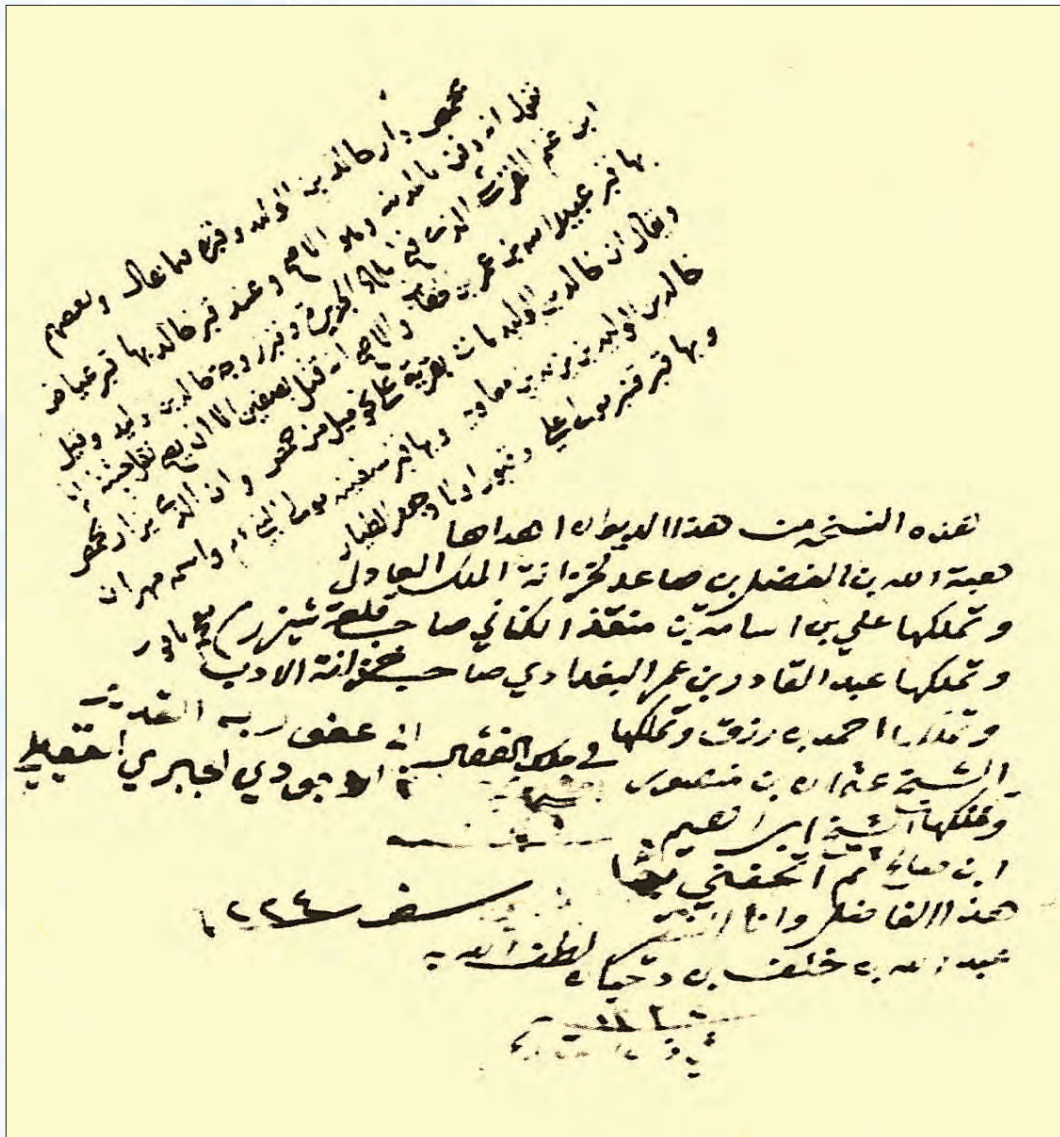 بحمص دار خالد بن الوليد وقبره فيما يقال وبعضهم
نقل انه دفن بالمدينة وهو الاصح وعند قبر خالد بها قبر عياض
ابن غنم القرشي الذي فتح بلاد الجزيرة وقبر زوجة خالد بن وليد وقيل
بها قبر عبيد الله بن عمر بن خطاب والاصح انه قتل بصفين الا ان يصح نقل جثته
ويقال ان خالد بن الوليد مات بقرية على نحو ميل من حمص وان الذي يزار بحمص
خالد بن الوليد بن يزيد بن معاوية وبها قبر سفينة مولى النبي واسمه مهران
وبها قبر قنبر مولى علي وقبور اولاد جعفر الطيار
هذه النسخة من هذا الديوان اهداها
هبة الله بن الفضل بن صاعد لخزانة الملك العادل
وتملكها علي بن اسامة بن منقذ الكناني صاحب قلعة شيزر
وتملكها عبد القادر بن عمر البغدادي صاحب خزانة الادب
وتملكها احمد بن رزق وتملكها
الشيخ عثمان بن منصور
في ملك الفقير الى عفو ربه القدير
الجبري
وتملكها الشيخ ابراهيم
ابن صالح ثم اتحفني بها
هذا الفاضل وانا الفقير
عبد الله بن خلف بن دحيان لطف الله به
سنة ١٢٢٤